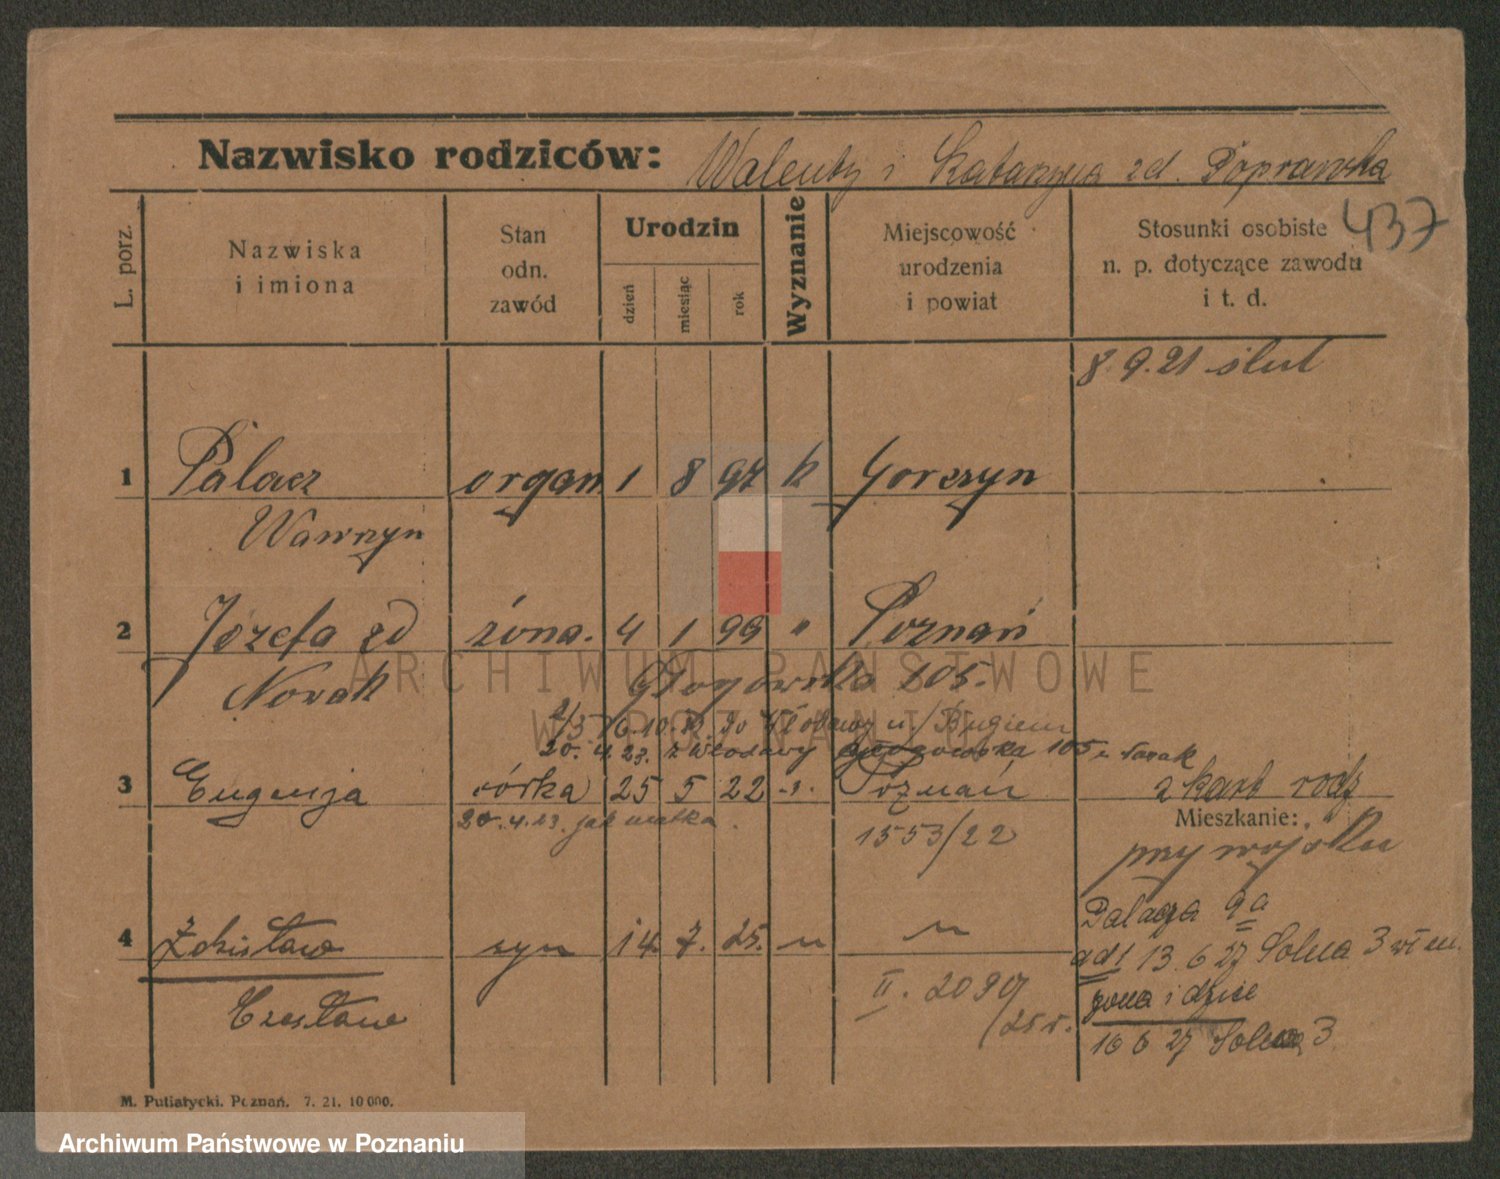 Nazwisko rodziców: Walenty i Katarzyna zd. Poprawska
437
L. porz.
Nazwiska
i imiona
Stan
odn.
zawód
Urodzin
dzień
miesiąc
rok
Wyznanie
Miejscowość
urodzenia
i powiat
Stosunki osobiste
n. p. dotyczące zawodu
i t. d.
8.9.21 ślub
1 Palacz organ 1 8 97 k Gorczyn
Wawrzyn
2 Józefa zd żona. 4 1 99 " Poznań
Nowak Głogowska 105.
6.10. do Włodawy n/Bugiem
20.4.23. z Włodawy Głogowska 105 Nowak
3 Eugenja córka 25 5 22 -"- Poznań z kart rodz
20.4.23. jak matka. 1553/22
Mieszkanie:
przy wojsku
4 Zdzisław syn 14. 7. 25. " "
Czesław II. 2090/25 r.
Palacza 9a
ad1 13 6 27 Solna 3
żona i dzieci
16 6 27 Solna 3
M. Putiatycki. Poznań. 7. 21. 10 000.
ARCHIWUM PAŃSTWOWE
W POZNANIU
Archiwum Państwowe w Poznaniu